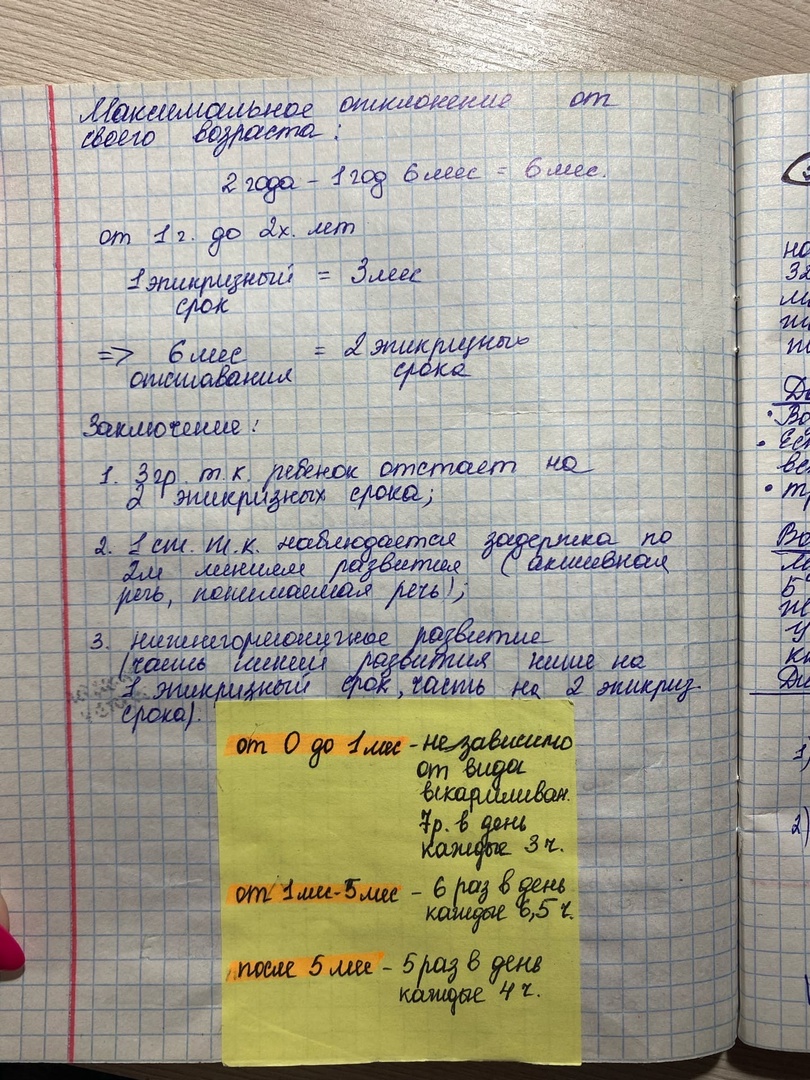 Максимальное отклонение от
своего возраста:
2 года - 1 год 6 мес = 6 мес.
от 1 г. до 2х. лет
1 эпикризный = 3 мес
срок
=> 6 мес = 2 эпикризных
отставания срока
Заключение:
1. 3 гр. т.к. ребенок отстает на
2 эпикризных срока;
2. 1 ст. т.к. наблюдается задержка по
2м линиям развития (активная
речь, понимаемая речь);
3. нижнегормоничное развитие
(часть линий развития ниже на
1 эпикризный срок, часть на 2 эпикриз.
срока).
от 0 до 1 мес - независимо
от вида
вскармливан.
7р. в день
каждые 3 ч.
от 1 мес - 5 мес - 6 раз в день
каждые 6,5 ч.
после 5 мес - 5 раз в день
каждые 4 ч.
но
32
Во
Ест
вс
тр
Во
5
1)
2)